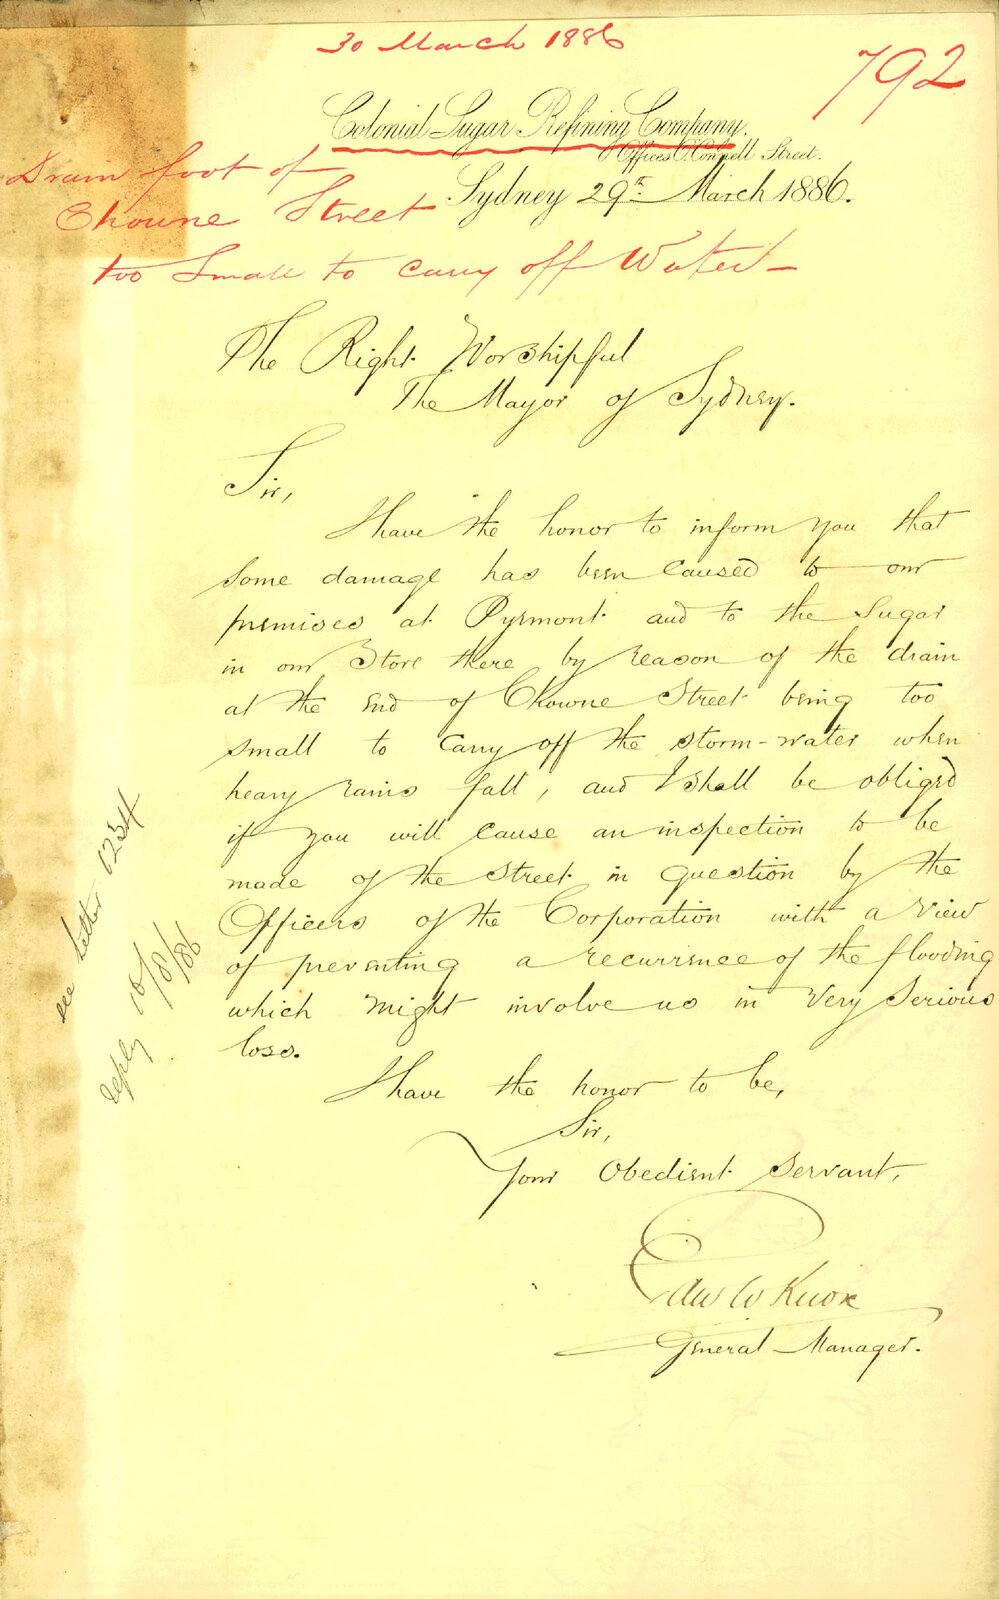 30 March 1886
792
Colonial Sugar Refining Company.
Offices O'Connell Street.
Sydney 29th March 1886.
Drain foot of
Chowne Street
too Small to carry off Water—
The Right Worshipful
The Mayor of Sydney.
Sir,
I have the honor to inform you that
some damage has been caused to our
premises at Pyrmont and to the Sugar
in our Store there by reason of the drain
at the end of Chowne Street being too
small to carry off the storm-water when
heavy rains fall, and I shall be obliged
if you will cause an inspection to be
made of the street in question by the
Officers of the Corporation with a view
of preventing a recurrence of the flooding
which might involve us in very serious
loss.
I have the honor to be,
Sir,
Your Obedient Servant,
Edw W Knox
General Manager.
see letter 1234
reply 10/8/86